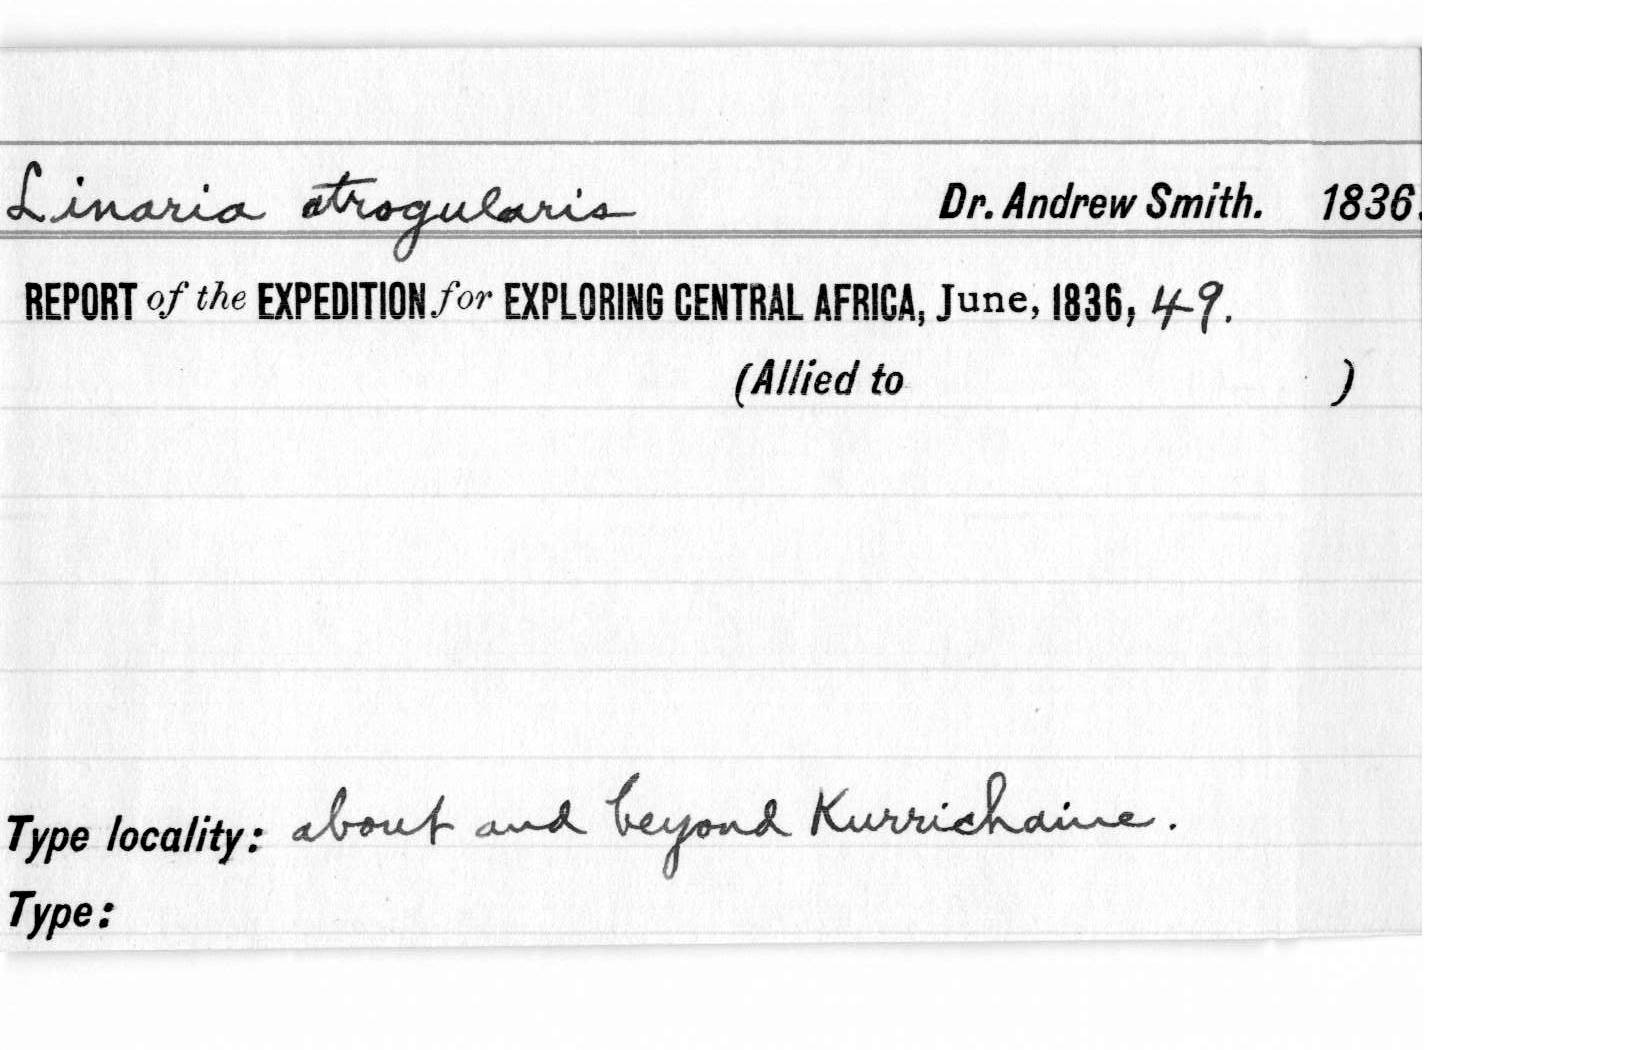 Linaria atrogularis Dr. Andrew Smith. 1836.
REPORT of the EXPEDITION for EXPLORING CENTRAL AFRICA, June, 1836, 49.
(Allied to )
Type locality: about and beyond Kurrichaine.
Type: